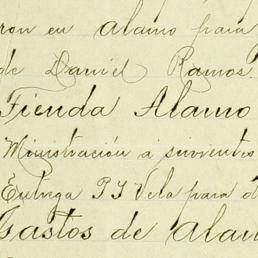 ron en alamo para
de Daniel Ramos.
Tienda Alamo
Ministración a sirvientes
Entrega P Y Vela para d
Gastos de alam